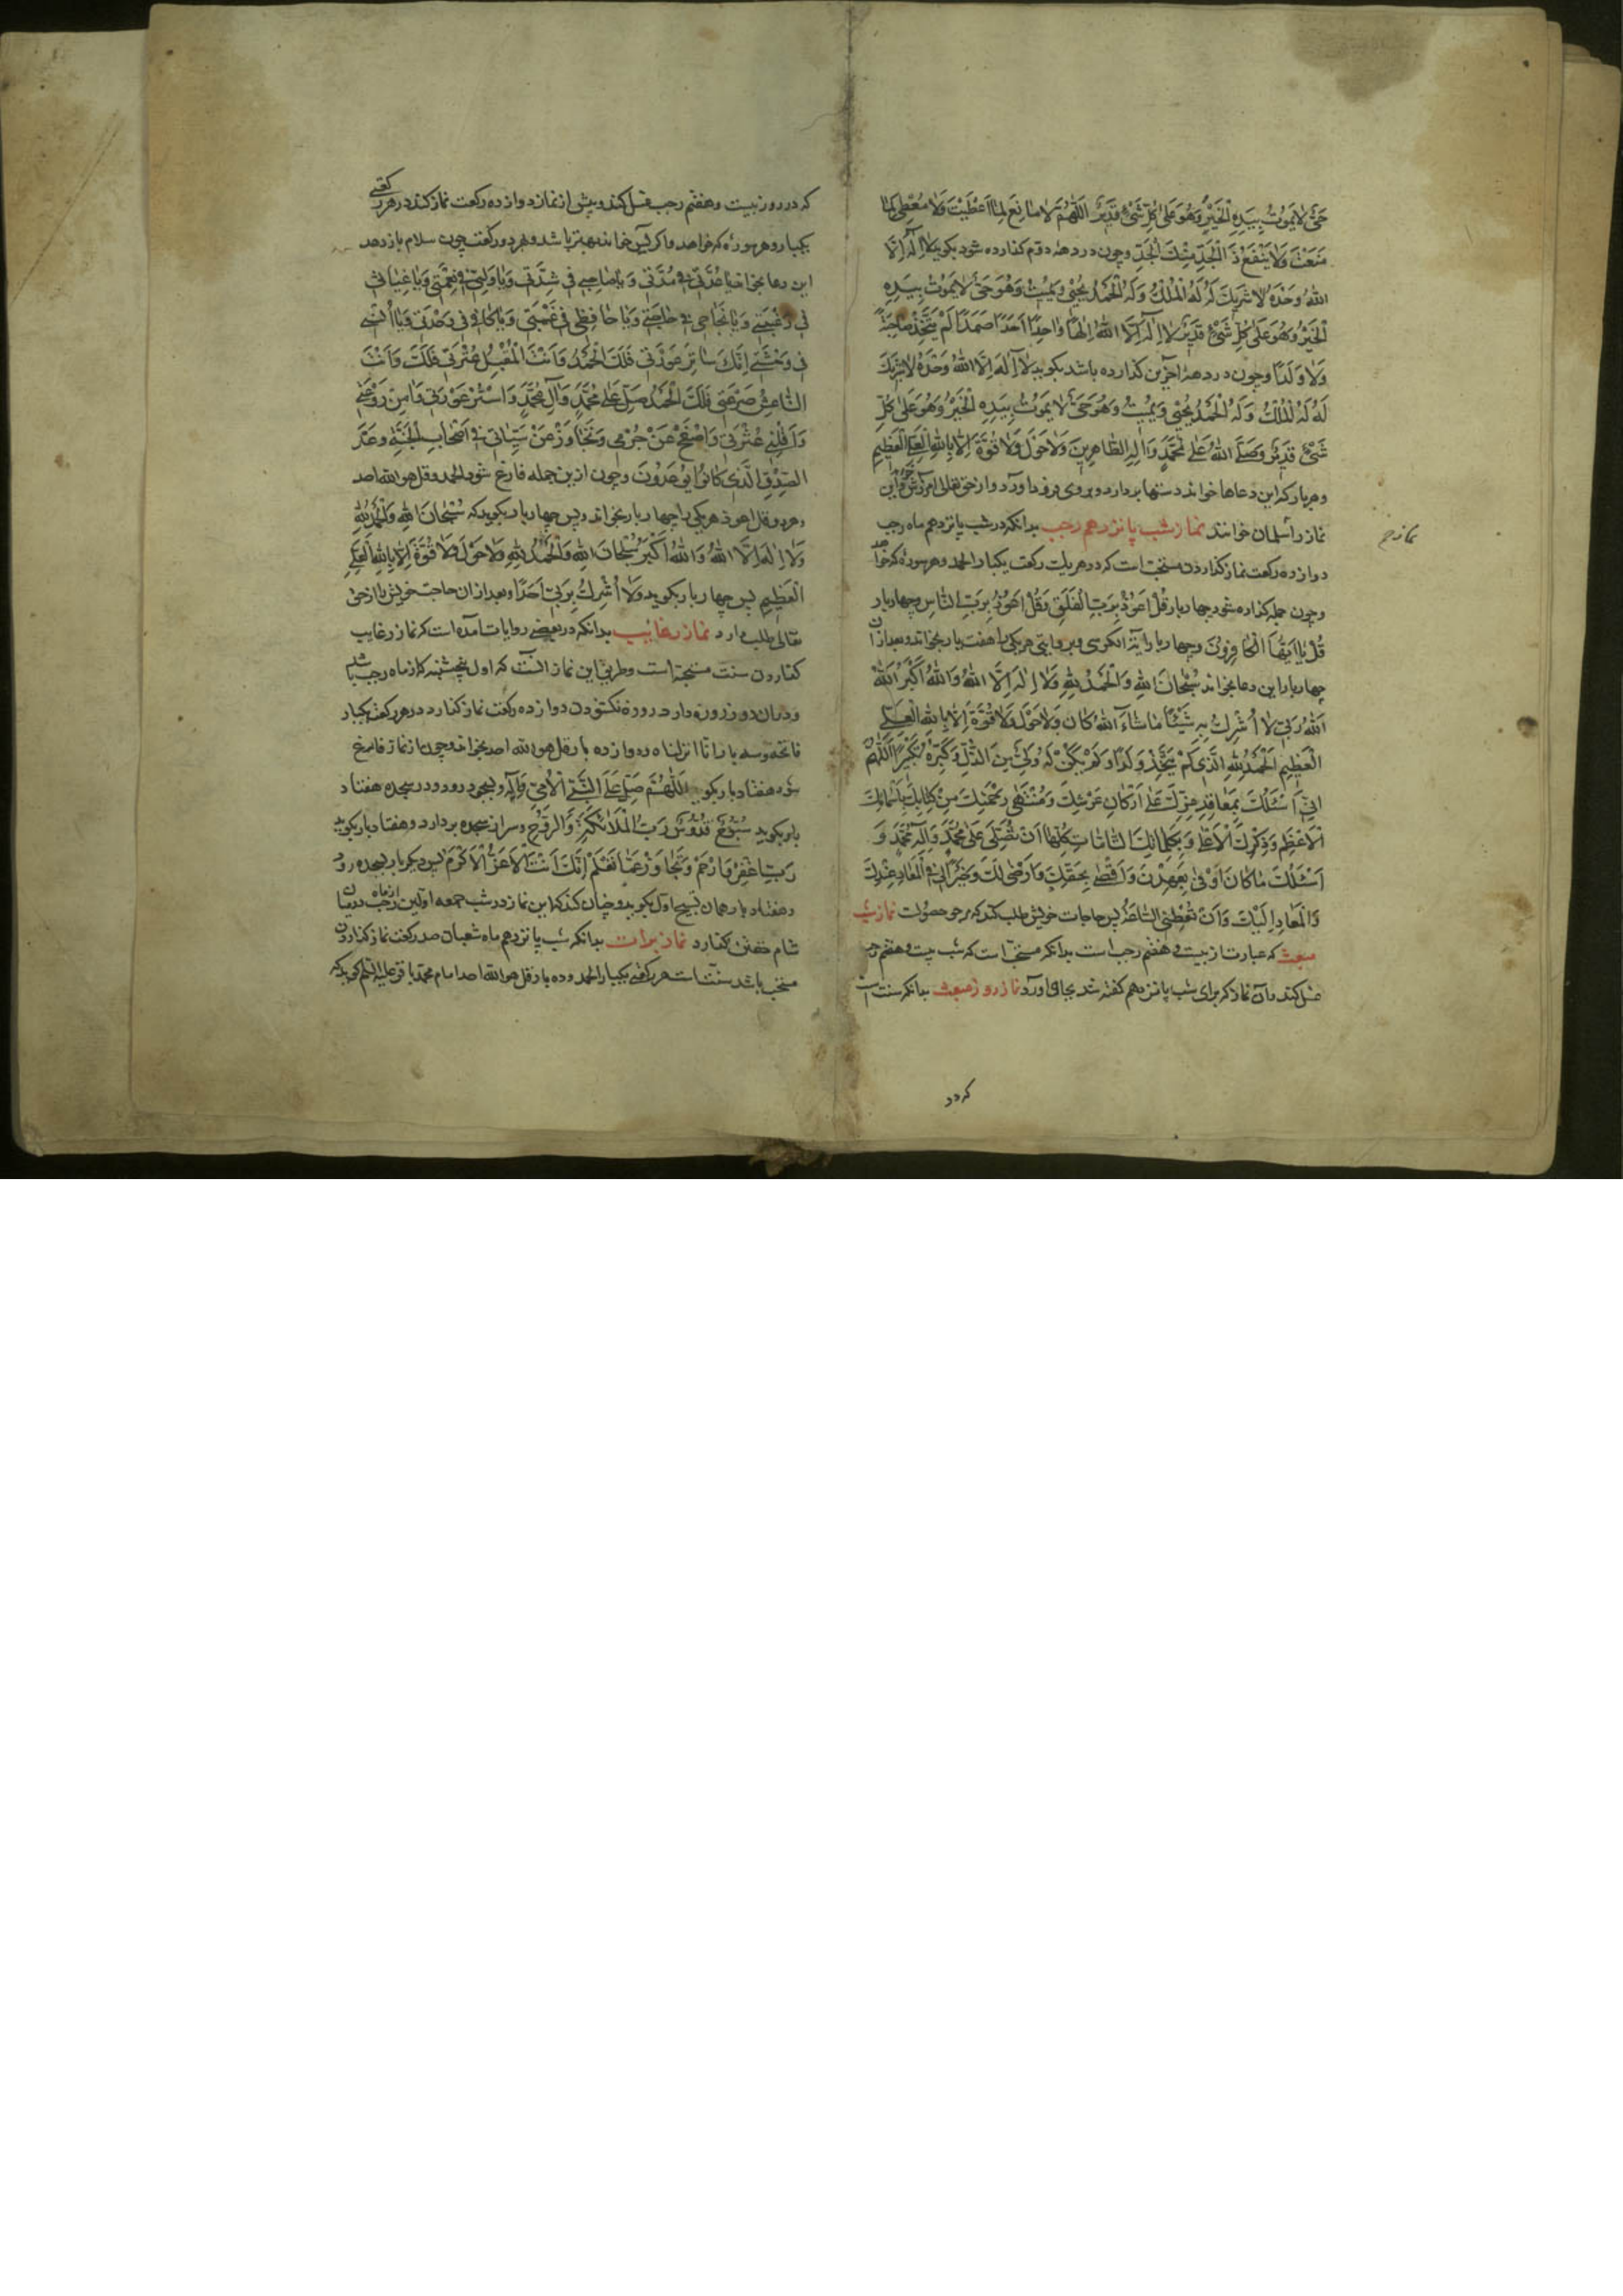 حَيٌّ لَا يَمُوتُ بِيَدِهِ الْخَيْرُ وَهُوَ عَلَى كُلِّ شَيْءٍ قَدِيرٌ اَللّٰهُمَّ لَا مَانِعَ لِمَا اَعْطَيْتَ وَلَا مُعْطِيَ لِمَا
مَنَعْتَ وَلَا يَنْفَعُ ذَا الْجَدِّ مِنْكَ الْجَدُّ و چون در دههٔ دوّم گذارده شود بگوید لَا اِلٰهَ اِلَّا
اللهُ وَحْدَهُ لَا شَرِيكَ لَهُ لَهُ الْمُلْكُ وَلَهُ الْحَمْدُ يُحْيِي وَيُمِيتُ وَهُوَ حَيٌّ لَا يَمُوتُ بِيَدِهِ
الْخَيْرُ وَهُوَ عَلَى كُلِّ شَيْءٍ قَدِيرٌ لَا اِلٰهَ اِلَّا اللهُ اِلٰهًا وَاحِدًا اَحَدًا صَمَدًا لَمْ يَتَّخِذْ صَاحِبَةً
وَلَا وَلَدًا و چون در دههٔ آخرین گذارده باشد بگوید لَا اِلٰهَ اِلَّا اللهُ وَحْدَهُ لَا شَرِيكَ
لَهُ لَهُ الْمُلْكُ وَلَهُ الْحَمْدُ يُحْيِي وَيُمِيتُ وَهُوَ حَيٌّ لَا يَمُوتُ بِيَدِهِ الْخَيْرُ وَهُوَ عَلَى كُلِّ
شَيْءٍ قَدِيرٌ وَصَلَّى اللهُ عَلَى مُحَمَّدٍ وَآلِهِ الطَّاهِرِينَ وَلَا حَوْلَ وَلَا قُوَّةَ اِلَّا بِاللهِ الْعَلِيِّ الْعَظِيمِ
و هر بار که این دعاها خواند دستها بر دارد و بروی فرود آورد و از حق تعالی آمرزش خواهد و این
نماز را سلمان خوانند نماز شب پانزدهم رجب بدانکه در شب پانزدهم ماه رجب
دوازده رکعت نماز گذاردن مستحبّ است که در هر یک رکعت یکبار الحمد و هر سوره که خواهد
و چون جمله گذارده شود چهار بار قُلْ اَعُوذُ بِرَبِّ الْفَلَقِ وَقُلْ اَعُوذُ بِرَبِّ النَّاسِ و چهار بار
قُلْ يَا اَيُّهَا الْكَافِرُونَ و چهار بار آیة الکرسی و بروایتی هر یکی را هفت بار بخواند و بعد از آن
چهار بار این دعا بخواند سُبْحَانَ اللهِ وَالْحَمْدُ لِلّٰهِ وَلَا اِلٰهَ اِلَّا اللهُ وَاللهُ اَكْبَرُ اَللهُ
اَللهُ رَبِّي لَا اُشْرِكُ بِهِ شَيْئًا مَا شَاءَ اللهُ كَانَ وَلَا حَوْلَ وَلَا قُوَّةَ اِلَّا بِاللهِ الْعَلِيِّ
الْعَظِيمِ اَلْحَمْدُ لِلّٰهِ الَّذِي لَمْ يَتَّخِذْ وَلَدًا وَلَمْ يَكُنْ لَهُ وَلِيٌّ مِنَ الذُّلِّ وَكَبِّرْهُ تَكْبِيرًا اَللّٰهُمَّ
اِنِّي اَسْئَلُكَ بِمَعَاقِدِ عِزِّكَ عَلَى اَرْكَانِ عَرْشِكَ وَمُنْتَهَى رَحْمَتِكَ مِنْ كِتَابِكَ بِاسْمِكَ
الْاَعْظَمِ وَذِكْرِكَ الْاَعْلَى وَبِكَلِمَاتِكَ التَّامَّاتِ كُلِّهَا اَنْ تُصَلِّيَ عَلَى مُحَمَّدٍ وَآلِ مُحَمَّدٍ وَ
اَسْئَلُكَ مَا كَانَ اَوْفَى بِعَهْدِكَ وَاَقْضَى بِحَقِّكَ وَاَرْضَى لَكَ وَخَيْرًا لِي فِي الْمَعَادِ عِنْدَكَ
وَالْمَعَادِ اِلَيْكَ وَاَنْ تُعْطِيَنِي پس حاجات خویش طلب کند که مرجو حصولست نماز شب
مبعث که عبارت از بیست و هفتم رجب است بدانکه مستحبّ است که شب بیست و هفتم رجب
غسل کند و آن نماز که برای شب پانزدهم گفته شد بجای آورد نماز روز مبعث بدانکه سنت است
نماز رجب
که در روز بیست و هفتم رجب غسل کند و پیش از نماز دوازده رکعت نماز کند در هر رکعتی
یکبار و هر سوره که خواهد و اگر یس خواند بهتر باشد و هر دو رکعت چون سلام باز دهد
این دعا بخواند يَا عُدَّتِي فِي مُدَّتِي وَيَا صَاحِبِي فِي شِدَّتِي وَيَا وَلِيِّي فِي نِعْمَتِي وَيَا غِيَاثِي
فِي رَغْبَتِي وَيَا نَجَاحِي فِي حَاجَتِي وَيَا حَافِظِي فِي غَيْبَتِي وَيَا كَافِيَّ فِي وَحْدَتِي وَيَا اُنْسِي
فِي وَحْشَتِي اِنَّكَ سَاتِرُ عَوْرَتِي فَلَكَ الْحَمْدُ وَاَنْتَ الْمُقِيلُ عَثْرَتِي فَلَكَ وَاَنْتَ
النَّاعِشُ صَرْعَتِي فَلَكَ الْحَمْدُ صَلِّ عَلَى مُحَمَّدٍ وَآلِ مُحَمَّدٍ وَاسْتُرْ عَوْرَتِي وَآمِنْ رَوْعَتِي
وَاَقِلْنِي عَثْرَتِي وَاصْفَحْ عَنْ جُرْمِي وَتَجَاوَزْ عَنْ سَيِّئَاتِي فِي اَصْحَابِ الْجَنَّةِ وَعْدَ
الصِّدْقِ الَّذِي كَانُوا يُوعَدُونَ و چون ازین جمله فارغ شود الحمد و قل هو الله احد
و هر دو قل اعوذ هر یکی را چهار بار بخواند و پس چهار بار بگوید که سُبْحَانَ اللهِ وَالْحَمْدُ لِلّٰهِ
وَلَا اِلٰهَ اِلَّا اللهُ وَاللهُ اَكْبَرُ سُبْحَانَ اللهِ وَالْحَمْدُ لِلّٰهِ وَلَا حَوْلَ وَلَا قُوَّةَ اِلَّا بِاللهِ الْعَلِيِّ
الْعَظِيمِ پس چهار بار بگوید وَلَا اُشْرِكُ بِرَبِّي اَحَدًا و بعد از آن حاجت خویش را از حق
تعالی طلب دارد نماز رغایب بدانکه در بعضی روایات آمده است که نماز رغایب
گذاردن سنت مستحبّه است و طریق این نماز آنست که اول پنجشنبه که از ماه رجب باشد
و در آن روز روزه دارد روزه نگشودن دوازده رکعت نماز گذارد در هر رکعت یکبار
فاتحه و سه بار انا انزلناه و دوازده بار قل هو الله احد بخواند و چون از نماز فارغ
شود هفتاد بار بگوید اَللّٰهُمَّ صَلِّ عَلَى النَّبِيِّ الْاُمِّيِّ وَآلِهِ و بسجود رود و در سجده هفتاد
بار بگوید سُبُّوحٌ قُدُّوسٌ رَبُّ الْمَلَائِكَةِ وَالرُّوحِ و سر از سجده بر دارد و هفتاد بار بگوید
رَبِّ اغْفِرْ وَارْحَمْ وَتَجَاوَزْ عَمَّا تَعْلَمُ اِنَّكَ اَنْتَ الْاَعَزُّ الْاَكْرَمُ پس دیگر بار بسجده رود
و هفتاد بار همان تسبیح اول بگوید و چنان کند که این نماز در شب جمعه اولین از ماه رجب در میان
شام خفتن گذارد نماز برات بدانکه شب پانزدهم ماه شعبان صد رکعت نماز گذاردن
مستحب باشد هر رکعتی یکبار الحمد و ده بار قل هو الله احد امام محمد باقر علیه السلم گوید که
که در